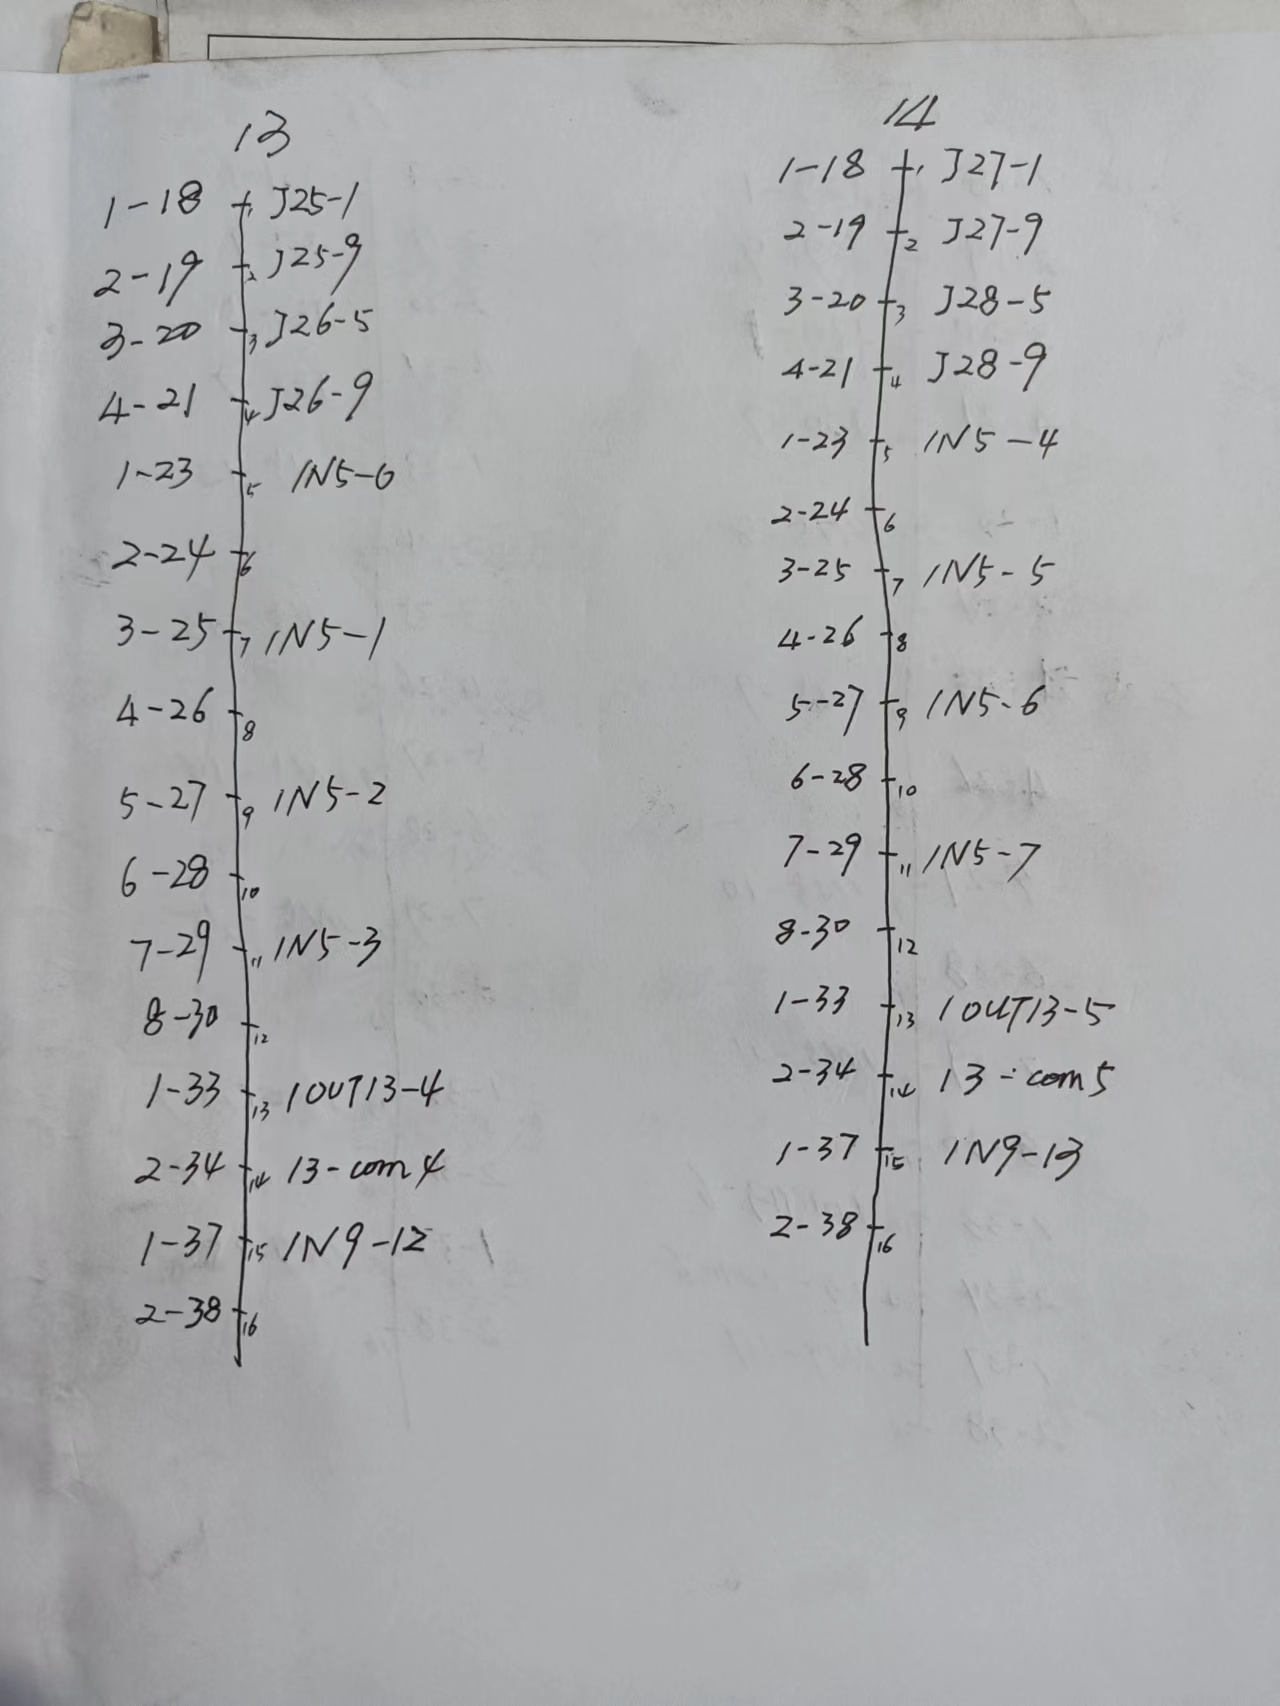 13
1-18 1 J25-1
2-19 2 J25-9
3-20 3 J26-5
4-21 4 J26-9
1-23 5 1N5-0
2-24 6
3-25 7 1N5-1
4-26 8
5-27 9 1N5-2
6-28 10
7-29 11 1N5-3
8-30 12
1-33 13 1OUT13-4
2-34 14 13-com4
1-37 15 1N9-12
2-38 16
14
1-18 1 J27-1
2-19 2 J27-9
3-20 3 J28-5
4-21 4 J28-9
1-23 5 1N5-4
2-24 6
3-25 7 1N5-5
4-26 8
5-27 9 1N5-6
6-28 10
7-29 11 1N5-7
8-30 12
1-33 13 1OUT13-5
2-34 14 13-com5
1-37 15 1N9-13
2-38 16